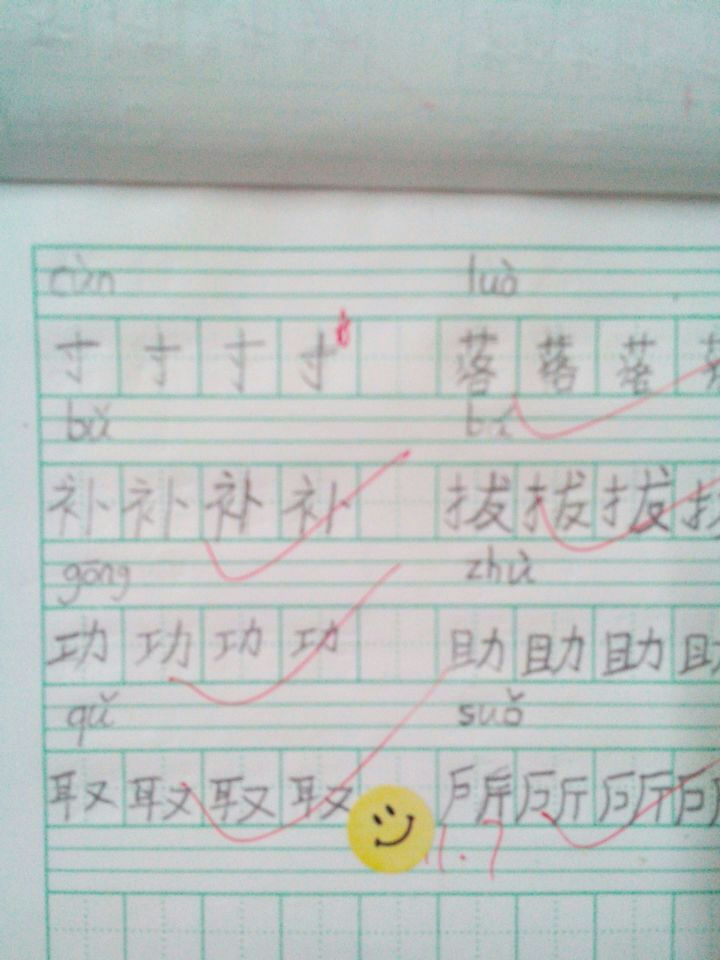 cùn luò
寸 寸 寸 寸 落 落 落
bǔ bá
补 补 补 补 拔 拔 拔
gōng zhù
功 功 功 功 助 助 助 助
qǔ suǒ
取 取 取 取 所 所 所
11.7